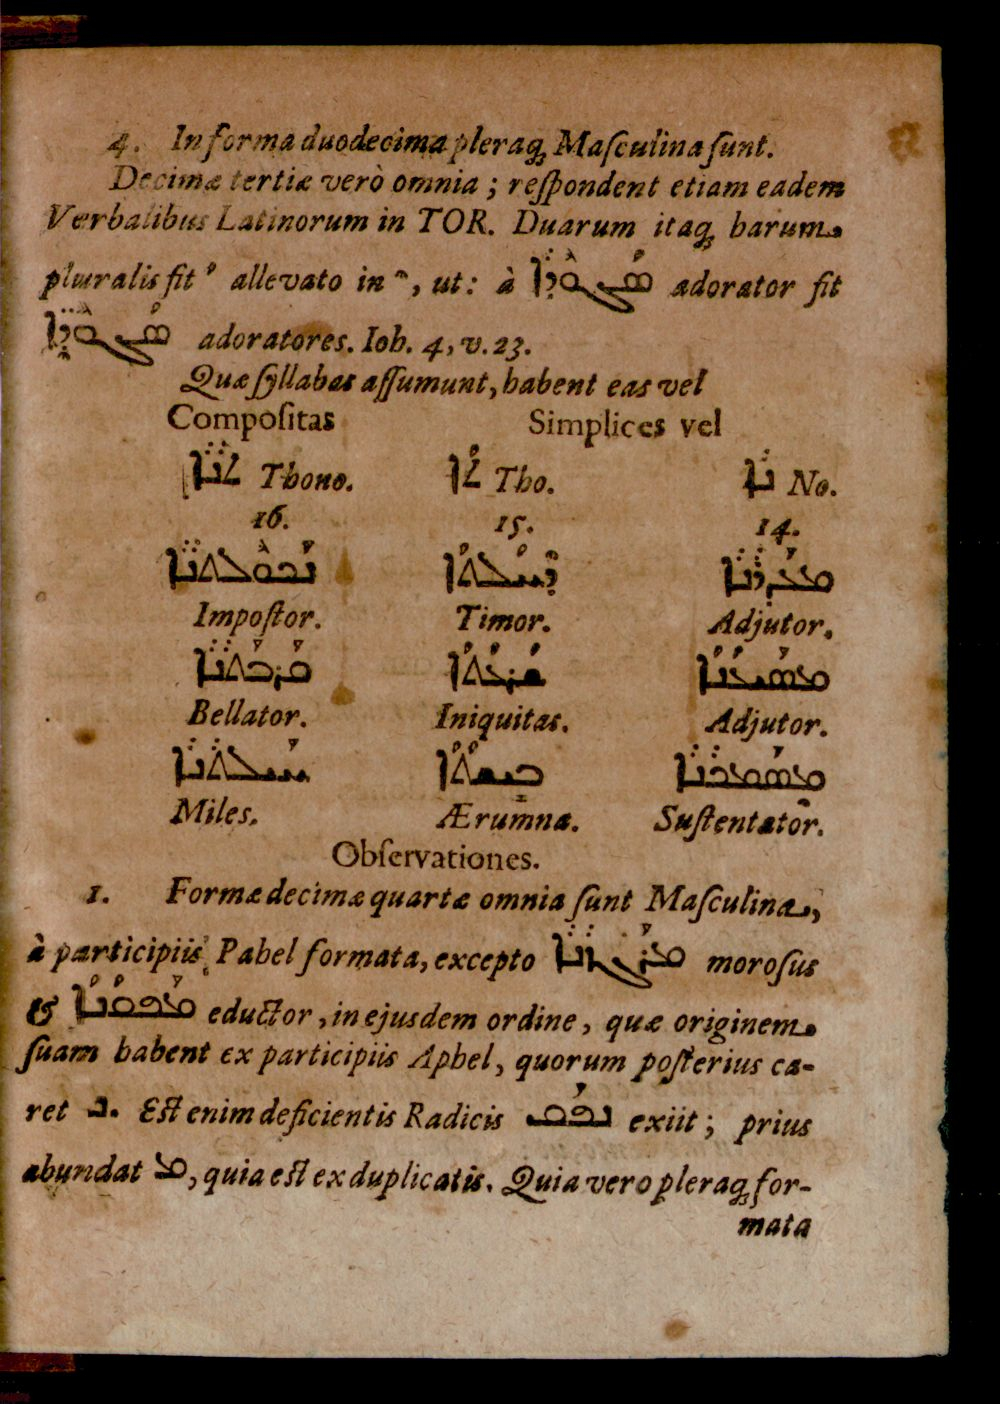 4. In forma duodecima pleraq; Masculina sunt.
Decimæ tertiæ verò omnia ; respondent etiam eadem
Verbalibus Latinorum in TOR. Duarum itaq; harum
pluralis fit allevato in , ut: à ܣܓܘܕܐ adorator fit
ܣܓܘܕܐ adoratores. Ioh. 4, v. 23.
Quæ syllabas assumunt, habent eas vel
Compositas Simplices vel
ܬܢܐ Thono. ܬܐ Tho. ܢܐ No.
16. 15. 14.
ܢܟܘܠܬܢܐ ܕܚܠܬܐ ܡܥܕܪܢܐ
Impostor. Timor. Adjutor.
ܩܪܒܬܢܐ ܣܝܥܢܐ
Bellator. Iniquitas. Adjutor.
ܚܝܠܬܢܐ ܒܝܫܬܐ ܡܣܡܟܢܐ
Miles. Ærumna. Sustentator.
Observationes.
1. Formæ decimæ quartæ omnia sunt Masculina,
à participiis Pahel formata, excepto morosus
& ܡܦܩܢܐ eductor, in ejusdem ordine, quæ originem
suam habent ex participiis Aphel, quorum posterius ca-
ret ܢ. Est enim deficientis Radicis ܢܦܩ exiit ; prius
abundat ܡ, quia est ex duplicatis. Quia vero pleraq; for-
mata